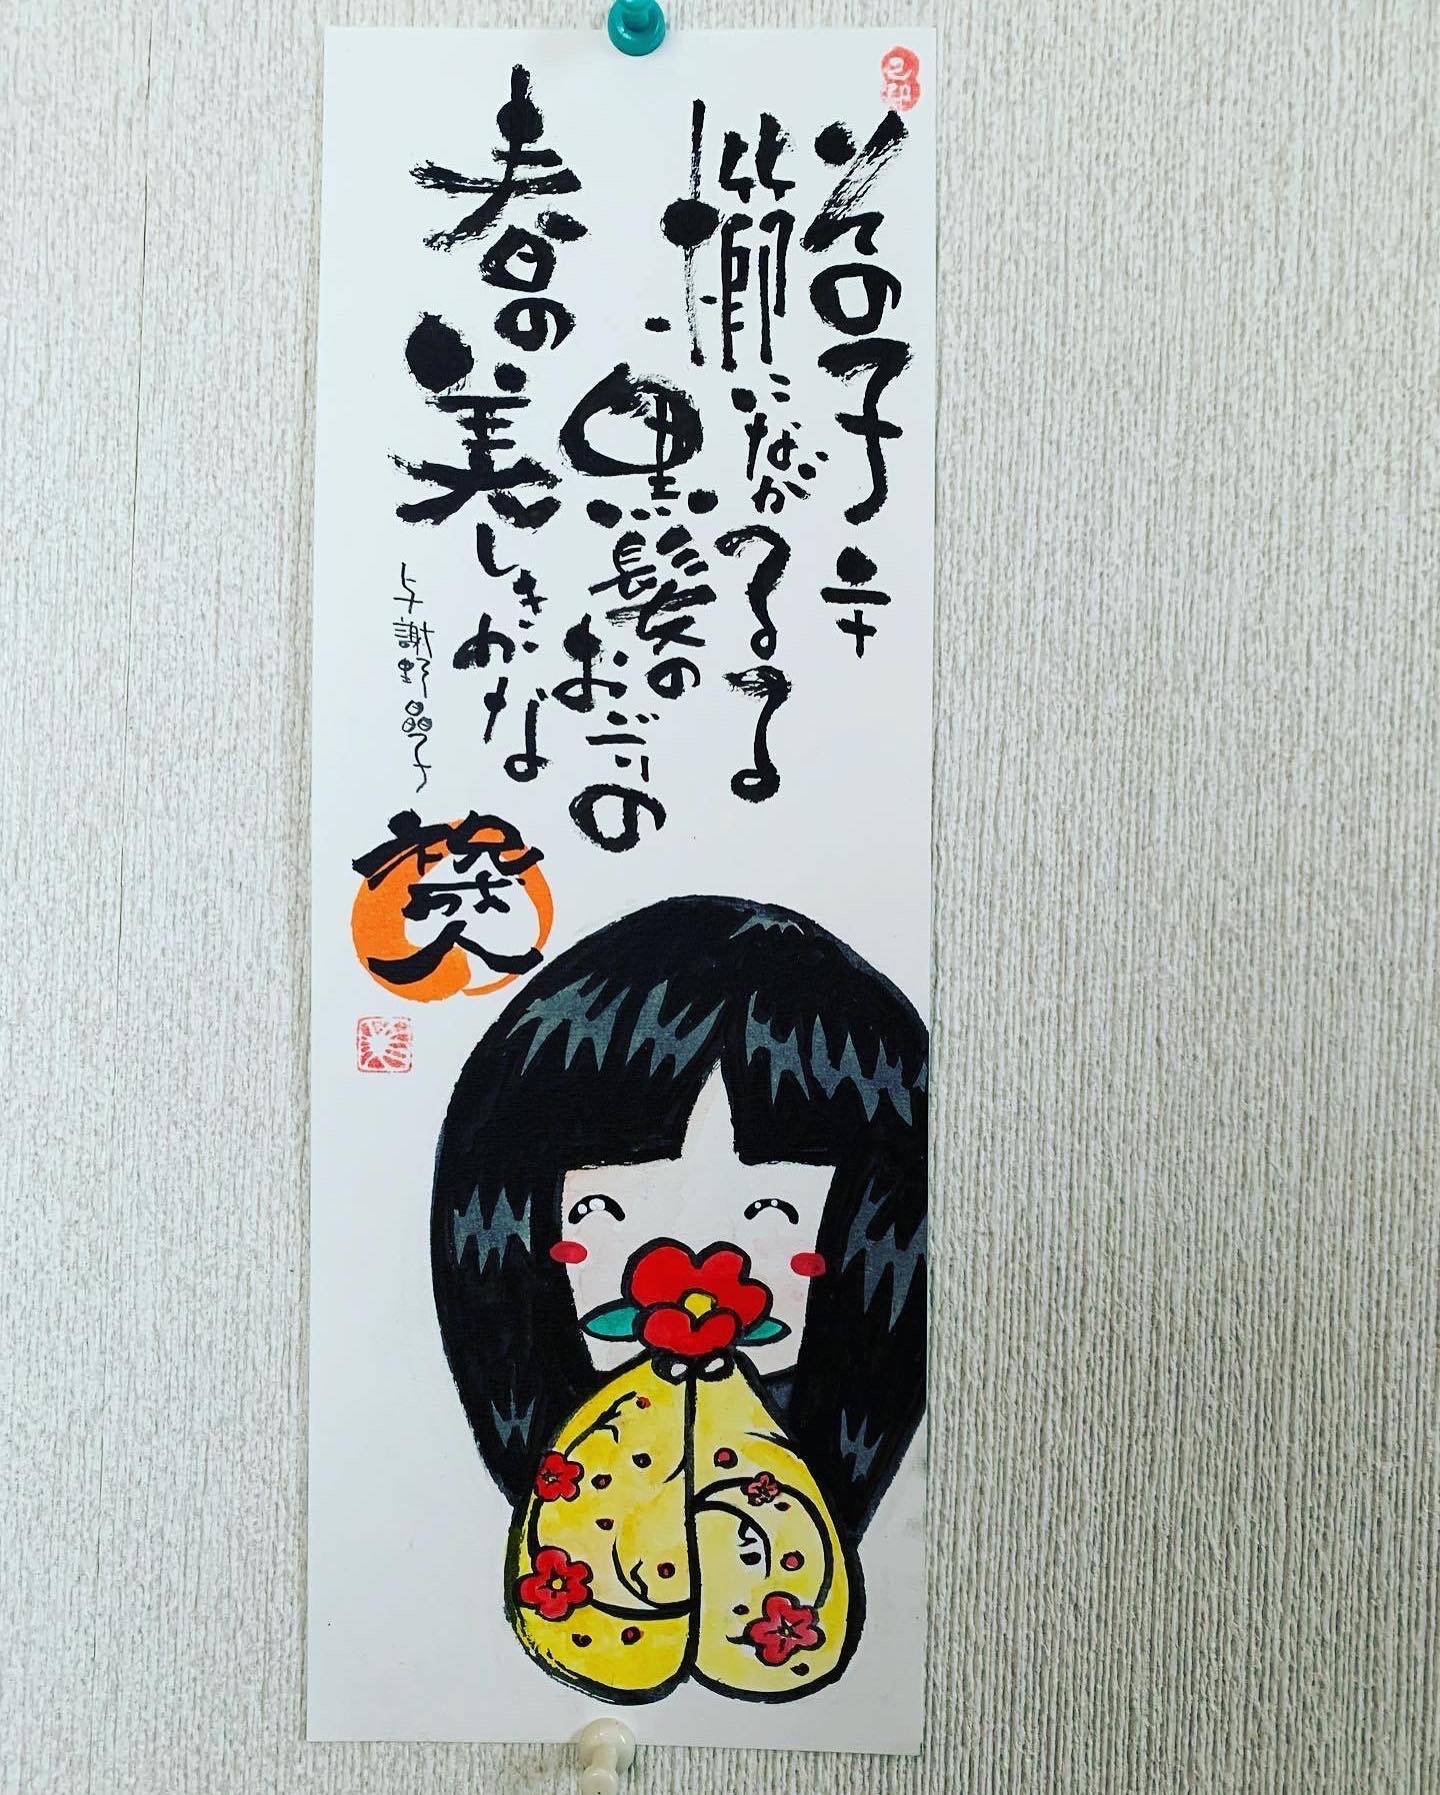 その子二十
櫛にながるる
黒髪の
おごりの
春の
美しきかな
与謝野晶子
祝
成人